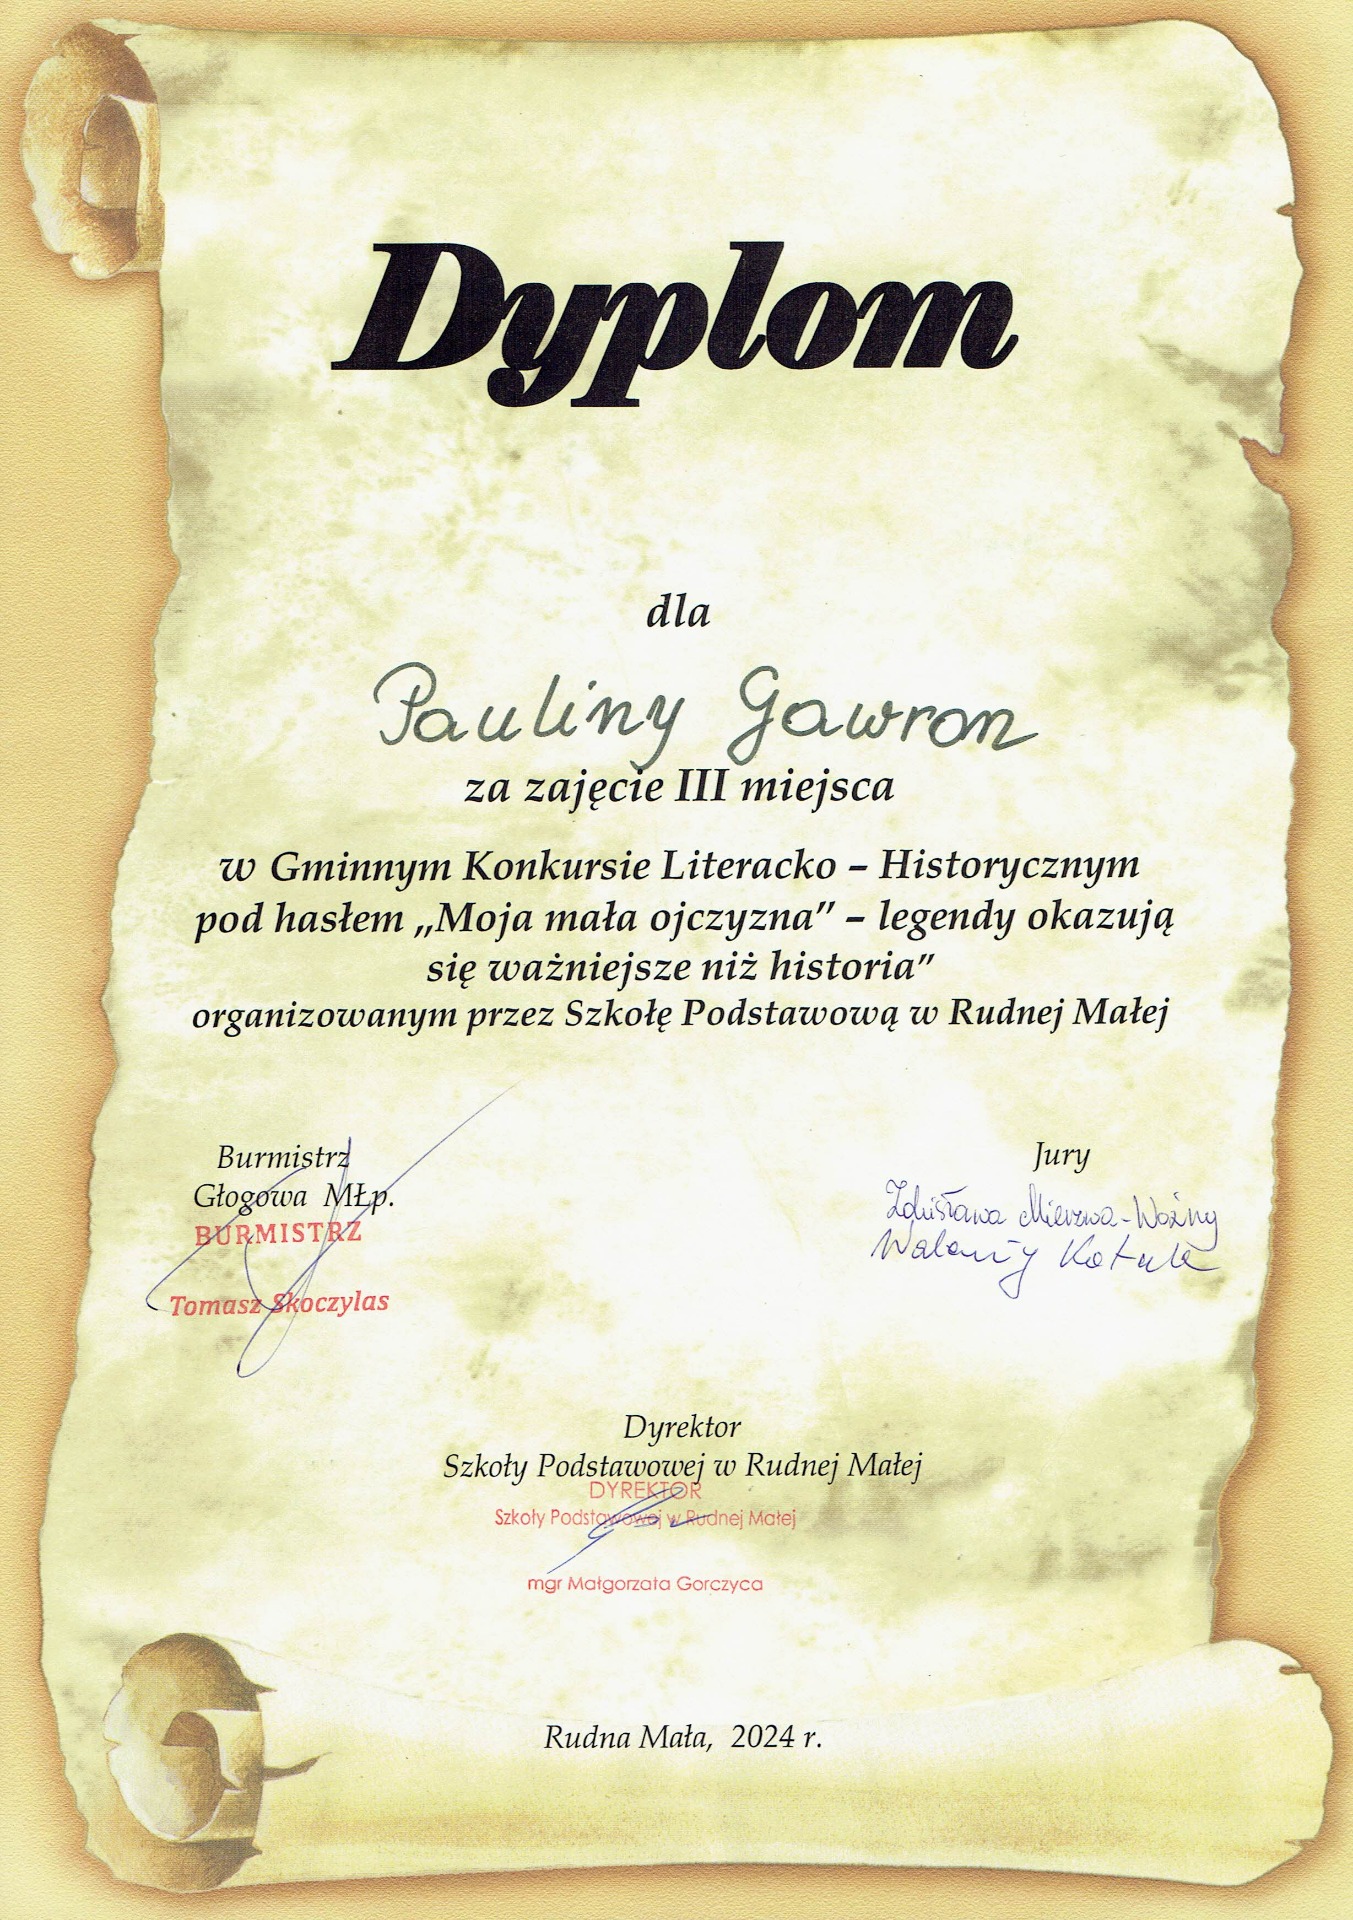 Dyplom
dla
Pauliny Gawron
za zajęcie III miejsca
w Gminnym Konkursie Literacko – Historycznym
pod hasłem „Moja mała ojczyzna” – legendy okazują
się ważniejsze niż historia”
organizowanym przez Szkołę Podstawową w Rudnej Małej
Burmistrz
Głogowa MŁp.
BURMISTRZ
Tomasz Skoczylas
Jury
Zdzisława Mierzwa-Woźny
Walenty Kotula
Dyrektor
Szkoły Podstawowej w Rudnej Małej
DYREKTOR
Szkoły Podstawowej w Rudnej Małej
mgr Małgorzata Gorczyca
Rudna Mała, 2024 r.